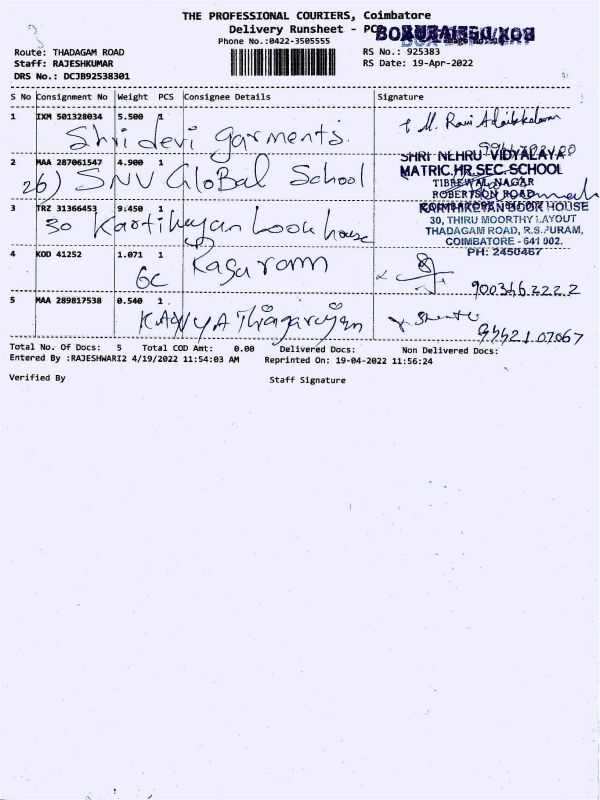 THE PROFESSIONAL COURIERS, Coimbatore
Delivery Runsheet -
Phone No.:0422-3505555
Route: THADAGAM ROAD
Staff: RAJESHKUMAR
DRS No.: DCJB92538301
RS No.: 925383
RS Date: 19-Apr-2022
S No Consignment No Weight PCS Consignee Details Signature
1 IXM 501328034 5.500 1
Shridevi garments.
2 MAA 287061547 4.900 1
26) SNV GloBal School
SHRI NEHRU VIDYALAYA
MATRIC.HR.SEC.SCHOOL
TIBREWAL NAGAR
ROBERTSON ROAD
3 TRZ 31366453 9.450 1
30 Kartikeyan book house
KARTHIKEYAN BOOK HOUSE
30, THIRU MOORTHY LAYOUT
THADAGAM ROAD, R.S.PURAM,
COIMBATORE - 641 002.
PH: 2450467
4 KOD 41252 1.071 1
6c
9003462222
5 MAA 289817538 0.540 1
KAVYA Thiagarajan
9442107067
Total No. Of Docs: 5 Total COD Amt: 0.00 Delivered Docs: Non Delivered Docs:
Entered By :RAJESHWARI2 4/19/2022 11:54:03 AM Reprinted On: 19-04-2022 11:56:24
Verified By Staff Signature